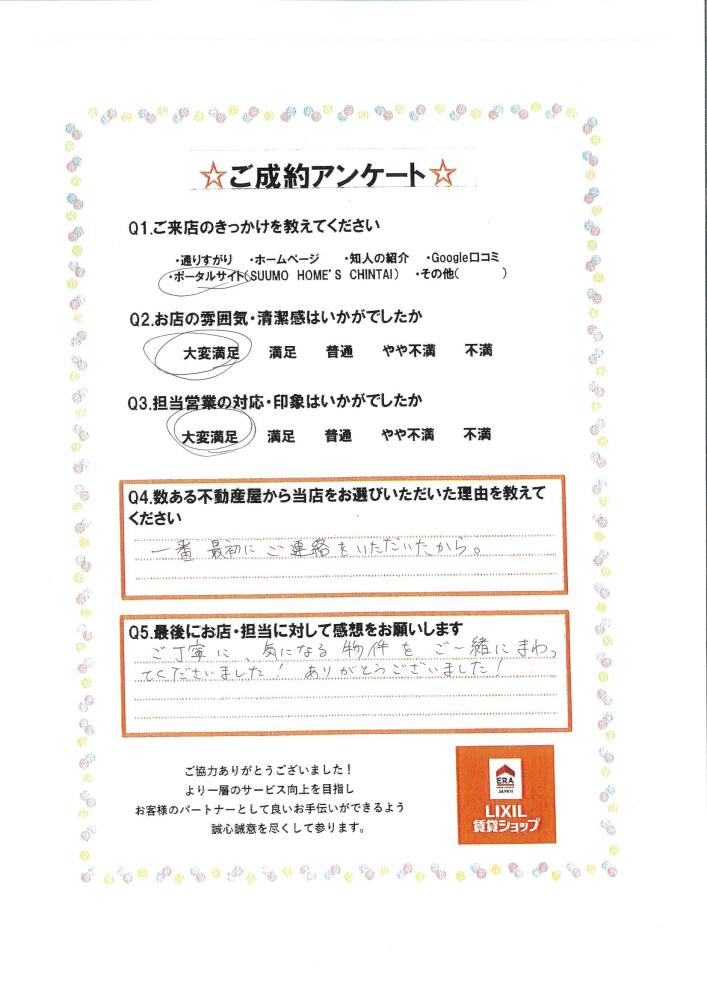 ☆ご成約アンケート☆
Q1.ご来店のきっかけを教えてください
・通りすがり ・ホームページ ・知人の紹介 ・Google口コミ
・ポータルサイト(SUUMO HOME'S CHINTAI) ・その他( )
Q2.お店の雰囲気・清潔感はいかがでしたか
大変満足 満足 普通 やや不満 不満
Q3.担当営業の対応・印象はいかがでしたか
大変満足 満足 普通 やや不満 不満
Q4.数ある不動産屋から当店をお選びいただいた理由を教えて
ください
一番 最初に ご連絡をいただいたから。
Q5.最後にお店・担当に対して感想をお願いします
ご丁寧に、気になる物件をご一緒にまわっ
てくださいました！ ありがとうございました！
ご協力ありがとうございました！
より一層のサービス向上を目指し
お客様のパートナーとして良いお手伝いができるよう
誠心誠意を尽くして参ります。
ERA
JAPAN
LIXIL
賃貸ショップ